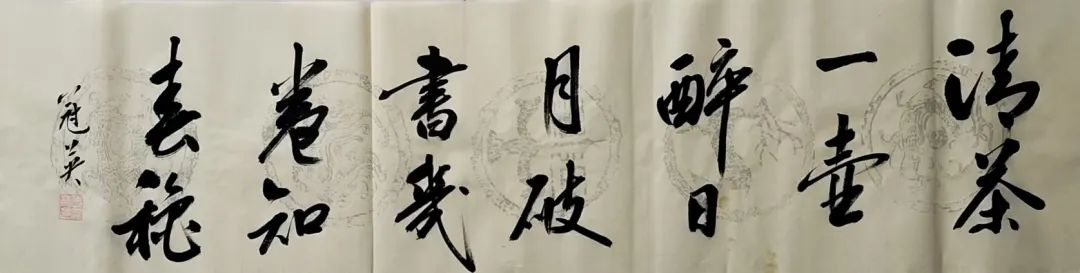 清茶
一壺
醉日
月破
書幾
卷知
春穐
冠英